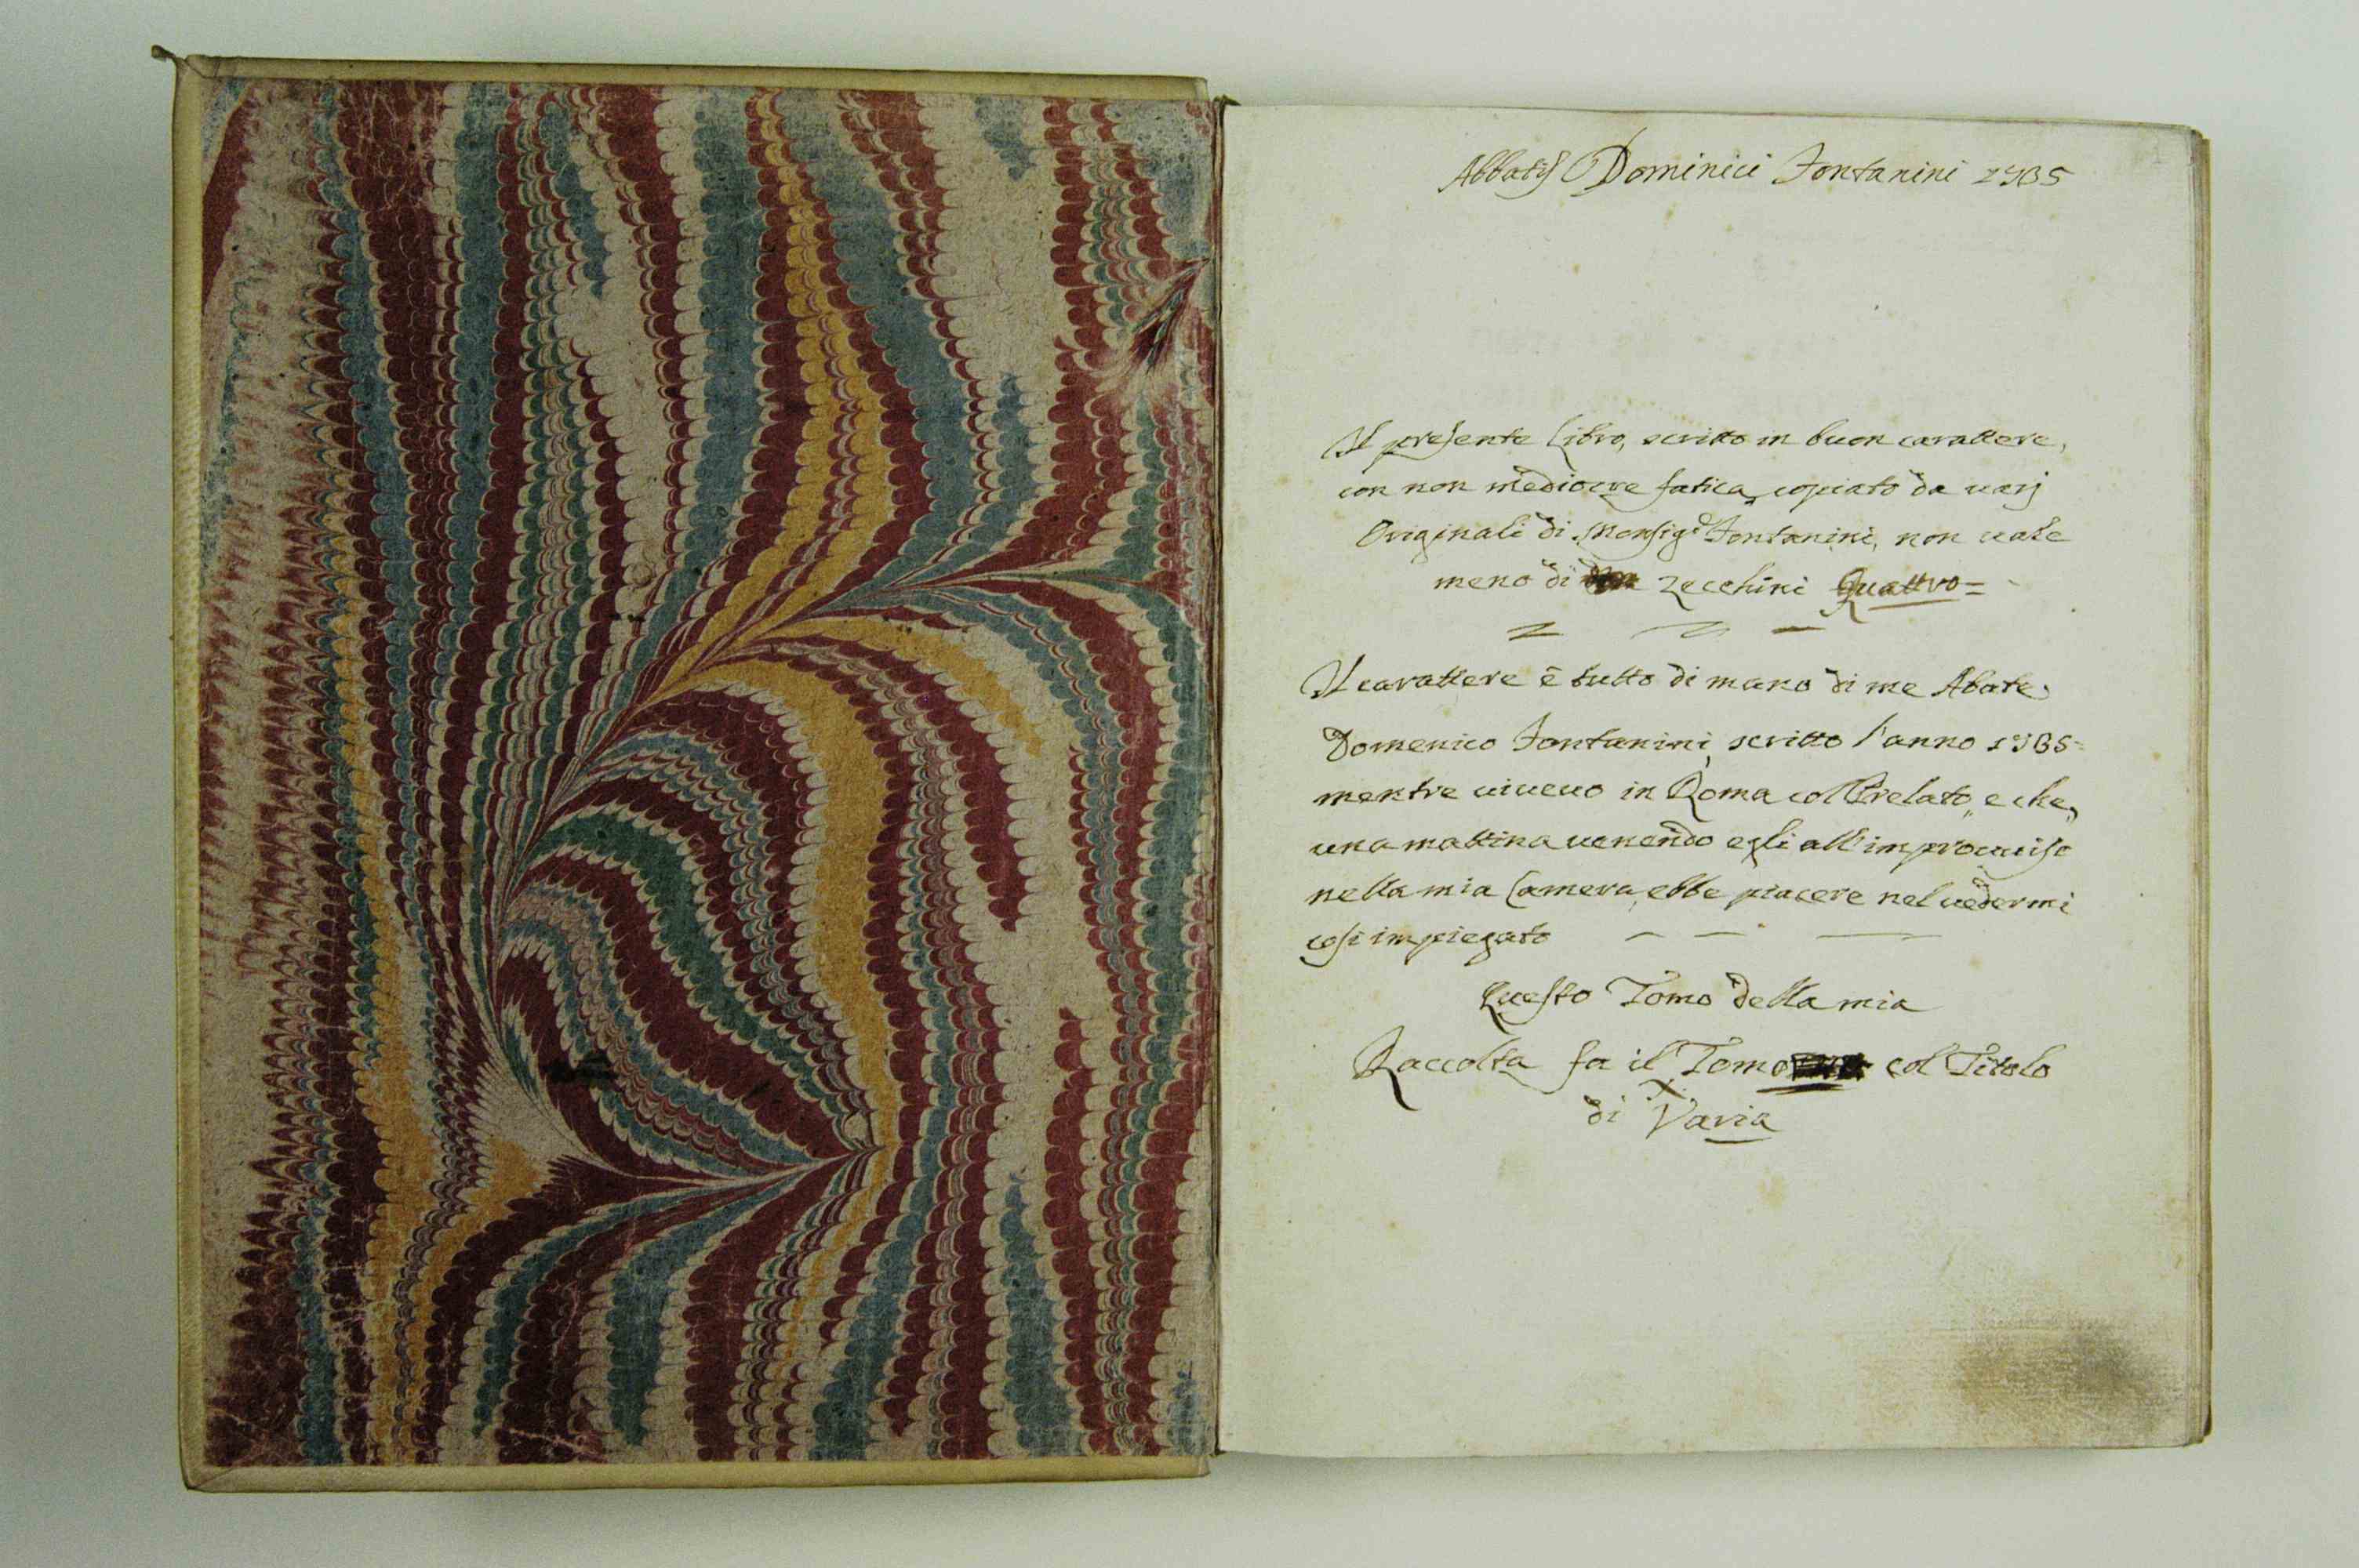 Abbatis Dominici Fontanini 1735
Il presente Libro, scritto in buon carattere,
con non mediocre fatica copiato da varj
Originali di Monsig.r Fontanini, non uale
meno di zecchini Quattro=
Il carattere è tutto di mano di me Abate
Domenico Fontanini, scritto l'anno 1735=
mentre uiueuo in Roma col Prelato, e che,
una mattina uenendo egli all'improuuiso
nella mia Camera, ebbe piacere nel uedermi
così impiegato
Questo Tomo della mia
Raccolta fa il Tomo col Titolo
X.
di Varia